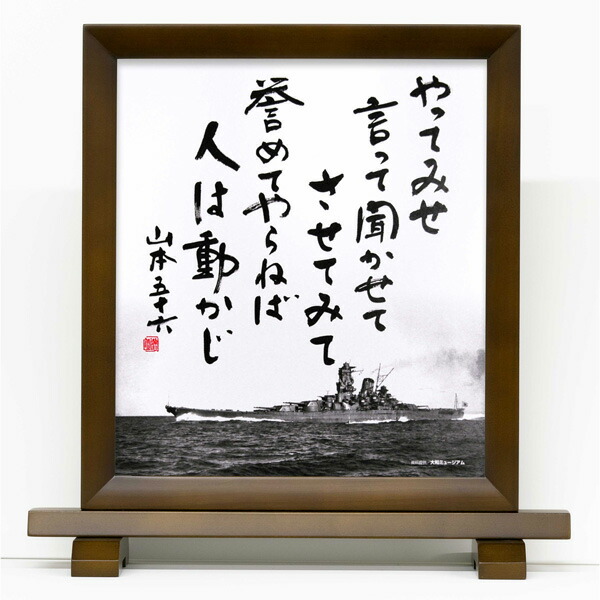 やってみせ
言って聞かせて
させてみて
誉めてやらねば
人は動かじ
山本五十六
資料提供/大和ミュージアム